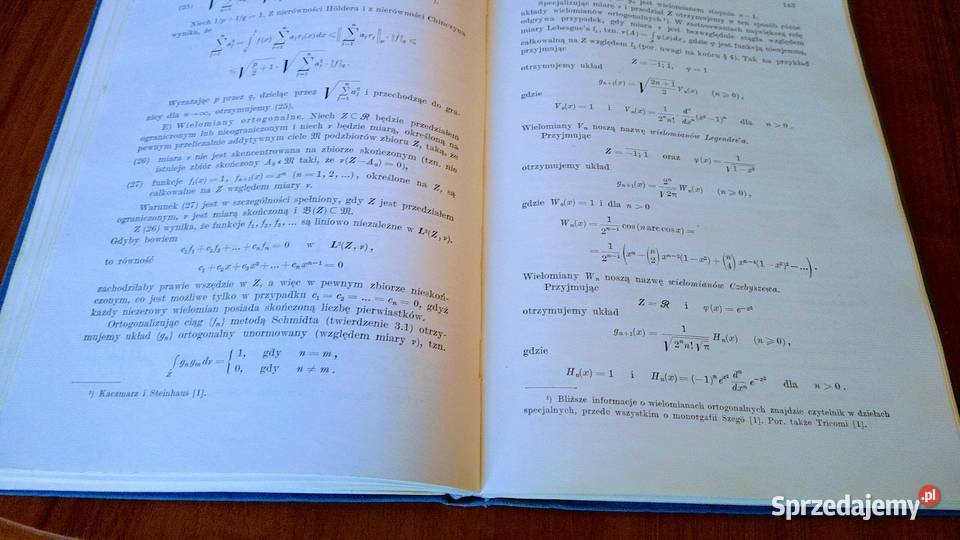 (25)
Niech 1/p+1/q = 1. Z nierówności Höldera i z nierówności Chinczyna
wynika, że
Wyrażając p przez q, dzieląc przez √∑a_j² i przechodząc do gra-
nicy dla n→∞, otrzymujemy (25).
E) Wielomiany ortogonalne. Niech Z ⊂ ℛ będzie przedziałem
ograniczonym lub nieograniczonym i niech ν będzie miarą, określoną na
pewnym przeliczalnie addytywnym ciele 𝔐 podzbiorów zbioru Z, taką, że
(26) miara ν nie jest skoncentrowana na zbiorze skończonym (tzn. nie
istnieje zbiór skończony A₀ ϵ 𝔐 taki, że ν(Z−A₀) = 0),
(27) funkcje f₁(x) = 1, fₙ₊₁(x) = xⁿ (n = 1, 2, ...), określone na Z, są
całkowalne na Z względem miary ν.
Warunek (27) jest w szczególności spełniony, gdy Z jest przedziałem
ograniczonym, ν jest miarą skończoną i 𝔅(Z) ⊂ 𝔐.
Z (26) wynika, że funkcje f₁, f₂, f₃, ... są liniowo niezależne w L²(Z, ν).
Gdyby bowiem
c₁f₁+c₂f₂+...+cₙfₙ = 0 w L²(Z, ν),
to równość
c₁+c₂x+c₃x²+...+cₙxⁿ⁻¹ = 0
zachodziłaby prawie wszędzie w Z, a więc w pewnym zbiorze nieskoń-
czonym, co jest możliwe tylko w przypadku c₁ = c₂ = ... = cₙ = 0, gdyż
każdy niezerowy wielomian posiada skończoną liczbę pierwiastków.
Ortogonalizując ciąg (fₙ) metodą Schmidta (twierdzenie 3.1) otrzy-
mujemy układ (gₙ) ortogonalny unormowany (względem miary ν), tzn.
∫_Z gₙgₘdν = { 1, gdy n = m,
0, gdy n ≠ m.
¹) Kaczmarz i Steinhaus [1].
163
jest wielomianem stopnia n−1.
Specjalizując miarę ν i przedział Z otrzymujemy w ten sposób różne
układy wielomianów ortogonalnych ¹). W zastosowaniach największą rolę
odgrywa przypadek, gdy miara ν jest bezwzględnie ciągła względem
miary Lebesgue'a l₁, tzn. ν(A) = ∫φ(x)dx, gdzie φ jest funkcją nieujemną,
całkowalną na Z względem l₁ (por. uwagi na końcu § 4). Tak na przykład
przyjmując
Z = −1; 1, φ = 1
otrzymujemy układ
gₙ₊₁(x) = √((2n+1)/2) Vₙ(x) (n ⩾ 0),
gdzie
V₀(x) = 1 i Vₙ(x) = 1/(2ⁿn!) dⁿ/dxⁿ (x²−1)ⁿ dla n > 0.
Wielomiany Vₙ noszą nazwę wielomianów Legendre'a.
Przyjmując
Z = −1; 1 oraz φ(x) = 1/√(1−x²)
otrzymujemy układ
gₙ₊₁(x) = 2ⁿ/√(2π) Wₙ(x) (n ⩾ 0),
gdzie W₀(x) = 1 i dla n > 0
Wₙ(x) = 1/2ⁿ⁻¹ cos(n arc cos x) =
= 1/2ⁿ⁻¹ (xⁿ − (n 2) xⁿ⁻²(1−x²) + (n 4) xⁿ⁻⁴(1−x²)² − ...).
Wielomiany Wₙ noszą nazwę wielomianów Czebyszewa.
Przyjmując
Z = ℛ i φ(x) = e^(−x²)
otrzymujemy układ
gₙ₊₁(x) = 1/√(2ⁿn!√π) Hₙ(x) (n ⩾ 0),
gdzie
H₀(x) = 1 i Hₙ(x) = (−1)ⁿ e^(x²) dⁿ/dxⁿ e^(−x²) dla n > 0.
¹) Bliższe informacje o wielomianach ortogonalnych znajdzie czytelnik w dziełach
specjalnych, przede wszystkim o monografii Szegö [1]. Por. także Tricomi [1].
Sprzedajemy.pl